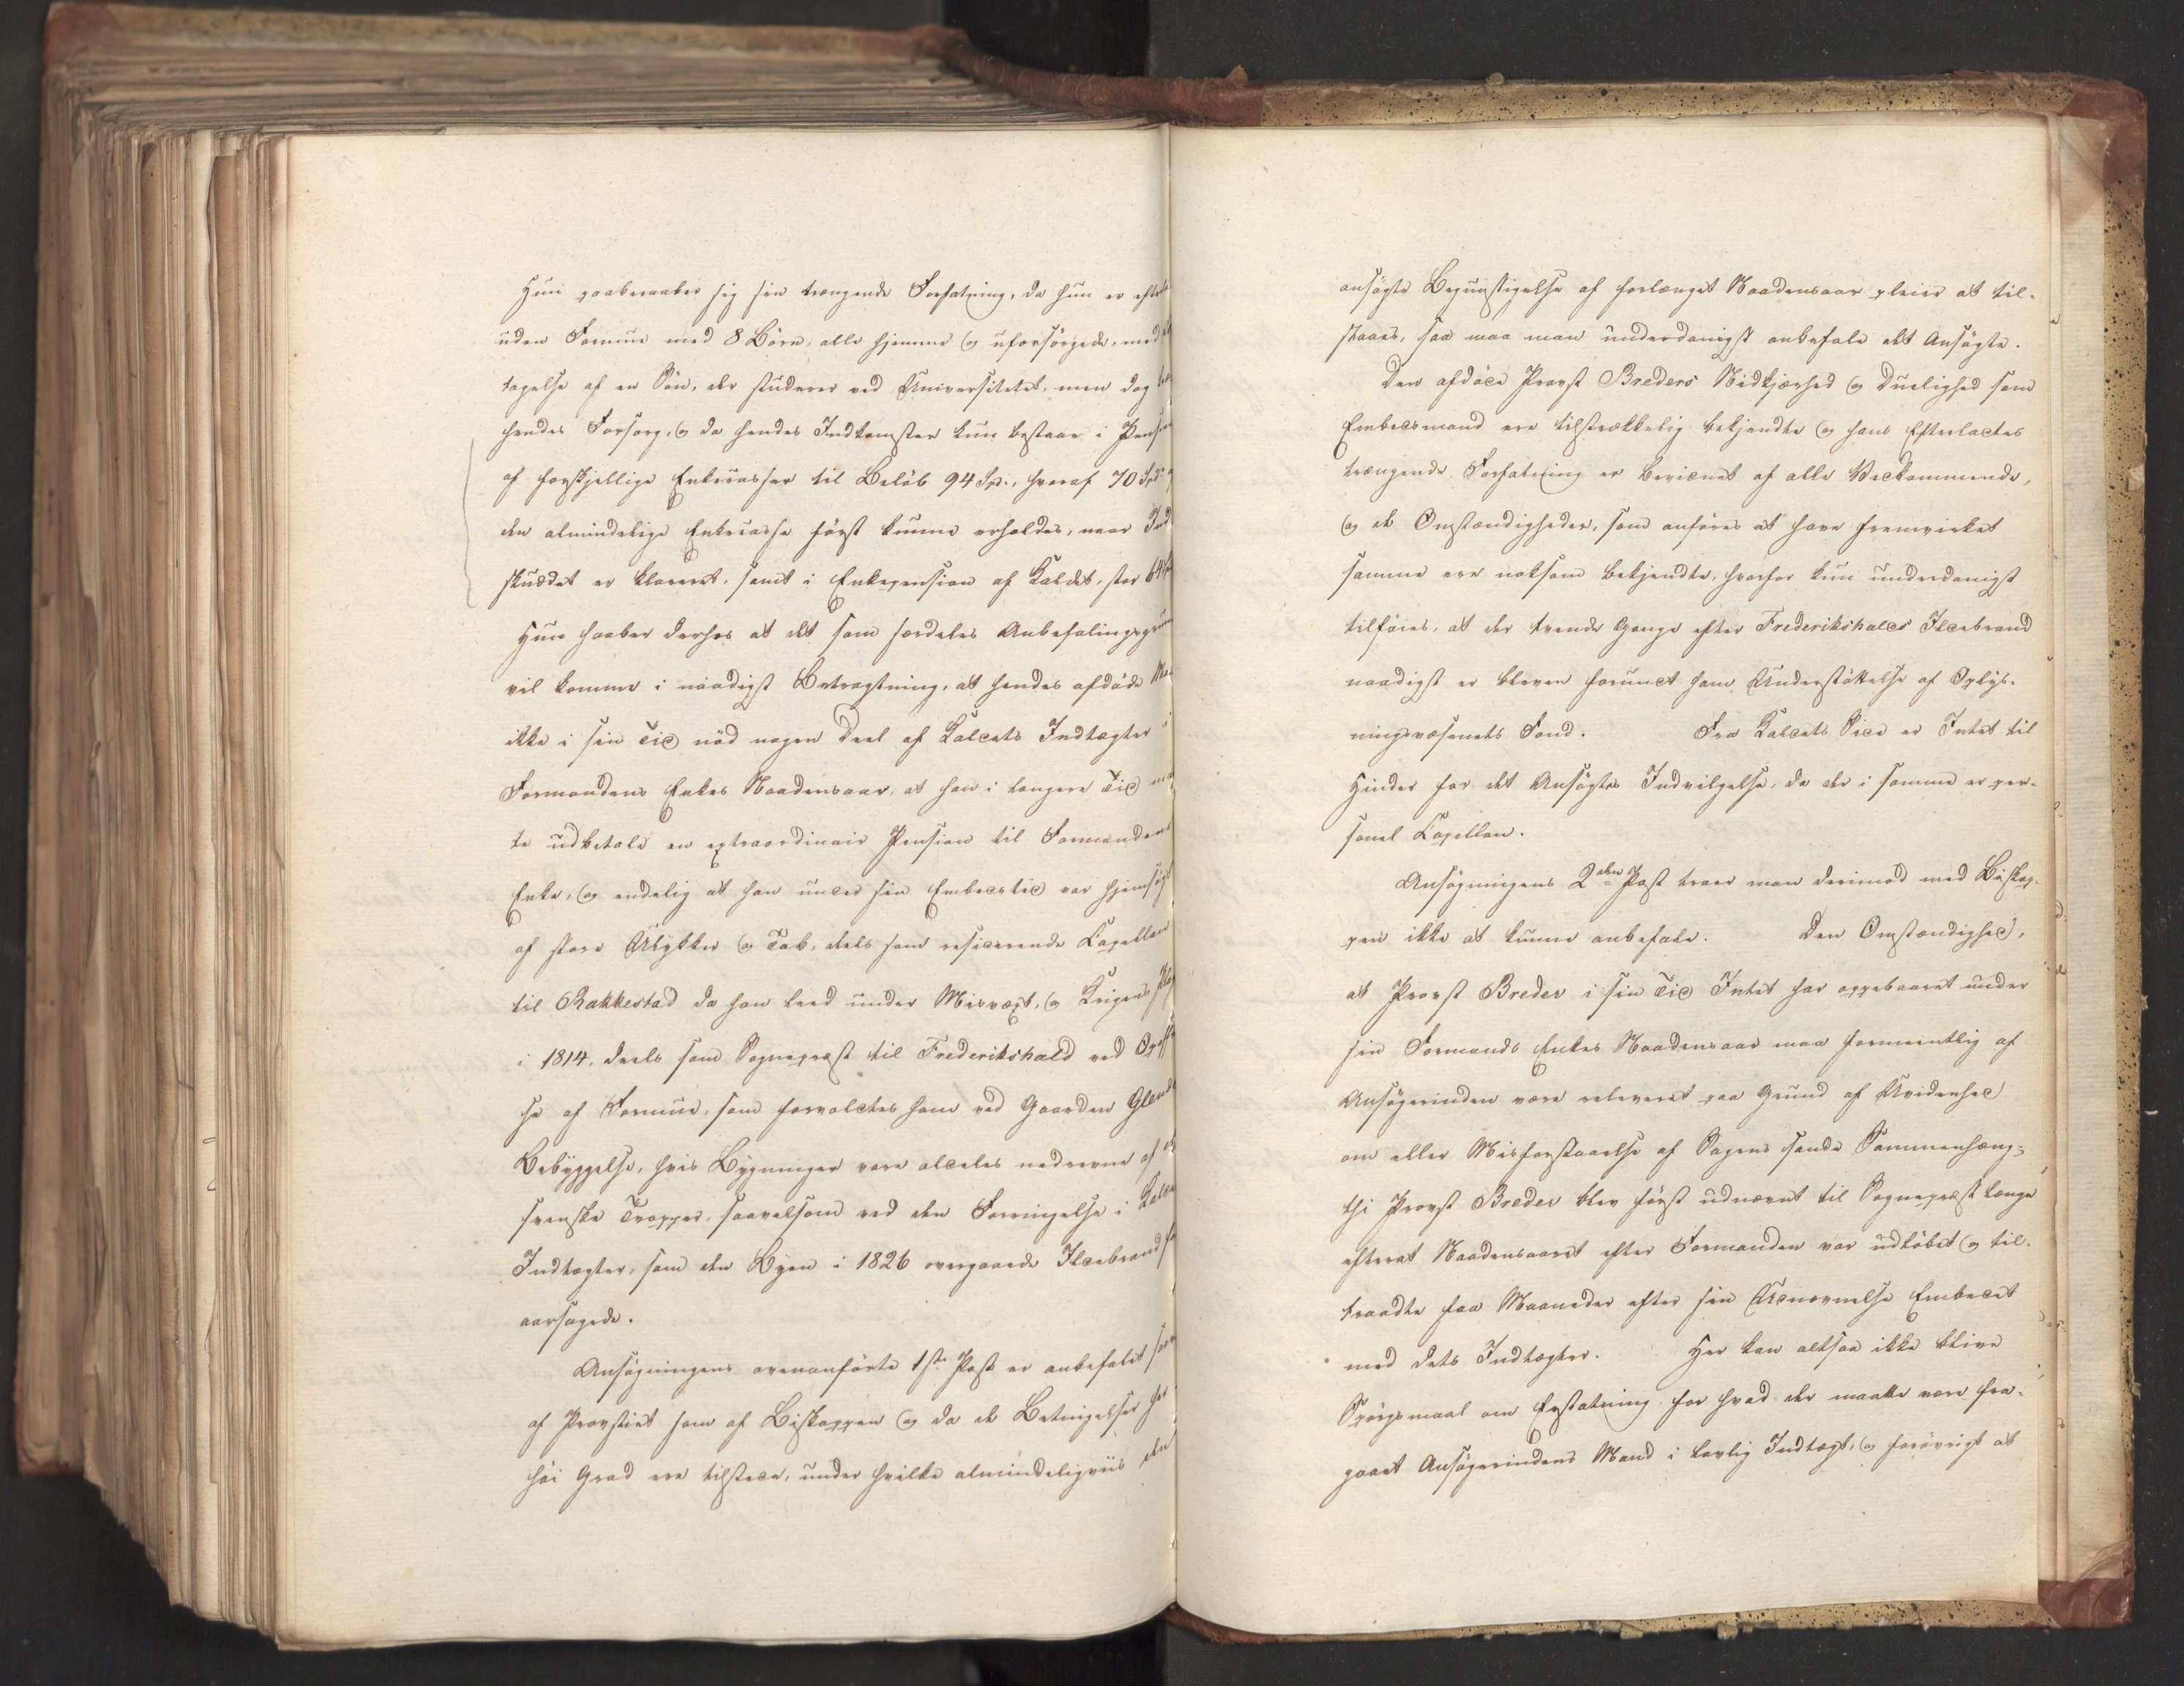 Hun paaberaaber sig sin trængende Forfatning, da hun er efterla
uden Formue med 8 Börn, alle hjemme og uforsörgede, med
tagelse af en Sön, der studerer ved Universitetet, men dog
hendes Forsorg, og da hendes Indkomster kun bestaae i Pension
af forskjellige Enkecasser til Belöb 94 Spd., hvoraf 70 Spd.
den almindelige Enkecasse först kunne erholdes, naar Ind
skuddet er klareret, samt i Enkepension af Kaldet, stor 64
Hun haaber derhos at det som særdeles Anbefalingsgrund
vil komme i naadigst Betragtning, at hendes afdöde
ikke i sin Tid nöd nogen Deel af Kaldets Indtægter i
Formandens Enkes Naadensaar, at han i længere Tid
te udbetale en extraordinair Pension til Formandens
Enke, og endelig at han under sin Embedstid var hjemsögt
af store Ulykker og Tab, dels som residerende Capellan
til Rakkestad da han leed under Misvæxt, og Krigens
i 1814, deels som Sognepræst til Frederikshald ved Opoff
se af Formue, som forvoldtes ham ved Gaarden Glen
Bebyggelse, hvis Bygninger vare aldeles nedrevne af
svenske Tropper, saavelsom ved den Forringelse i Kaldets
Indtægter, som den Byen i 1826 overgaaede Ildebrand
aarsagede.
Ansögningens ovenanförte 1ste Post er anbefalet saa
af Provstiet som af Biskoppen og da de Betingelser
höi Grad ere tilstede, under hvilke almindeligviis den
ansögte Begunstigelse af forlænget Naadensaar pleier at til-
staaes, saa maa man underdanigst anbefale det Ansögte.
Den afdöde Provst Breders Nidkjærhed og Duelighed som
Embedsmand ere tilstrækkelig bekjendte og hans Efterladtes
trængende Forfatning er bevidnet af alle Vedkommende,
og de Omstændigheder, som anföres at have fremvirket
samme ere noksom bekjendte, hvorfor kun underdanigst
tilföies, at der trende Gange efter Frederikshalds Ildebrand
naadigst er bleven forundt ham Understöttelse af Oplys-
ningsvæsenets Fond. Fra Kaldets Side er Intet til
Hinder for det Ansögtes Indvilgelse, da der i samme er per-
sonel Capellan.
Ansögningens 2den Post troer man derimod med Biskop-
pen ikke at kunne anbefale. Den Omstændighed,
at Provst Breder i sin Tid Intet har oppebaaret under
sin Formands Enkes Naadensaar maa formeentlig af
Ansögerinden være releveret paa Grund af Uvidenhed
om eller Misforstaaelse af Sagens sande Sammenhæng;
thi Provst Breder blev först udnævnt til Sognepræst længe
efterat Naadensaaret efter Formanden var udlöbet og til-
traadte faa Maaneder efter sin Udnævnelse Embedet
med dets Indtægter. Her kan altsaa ikke blive
Spörgsmaal om Erstatning for hvad der maatte være fra-
gaaet Ansögerindens Mand i lovlig Indtægt, og forövrigt at